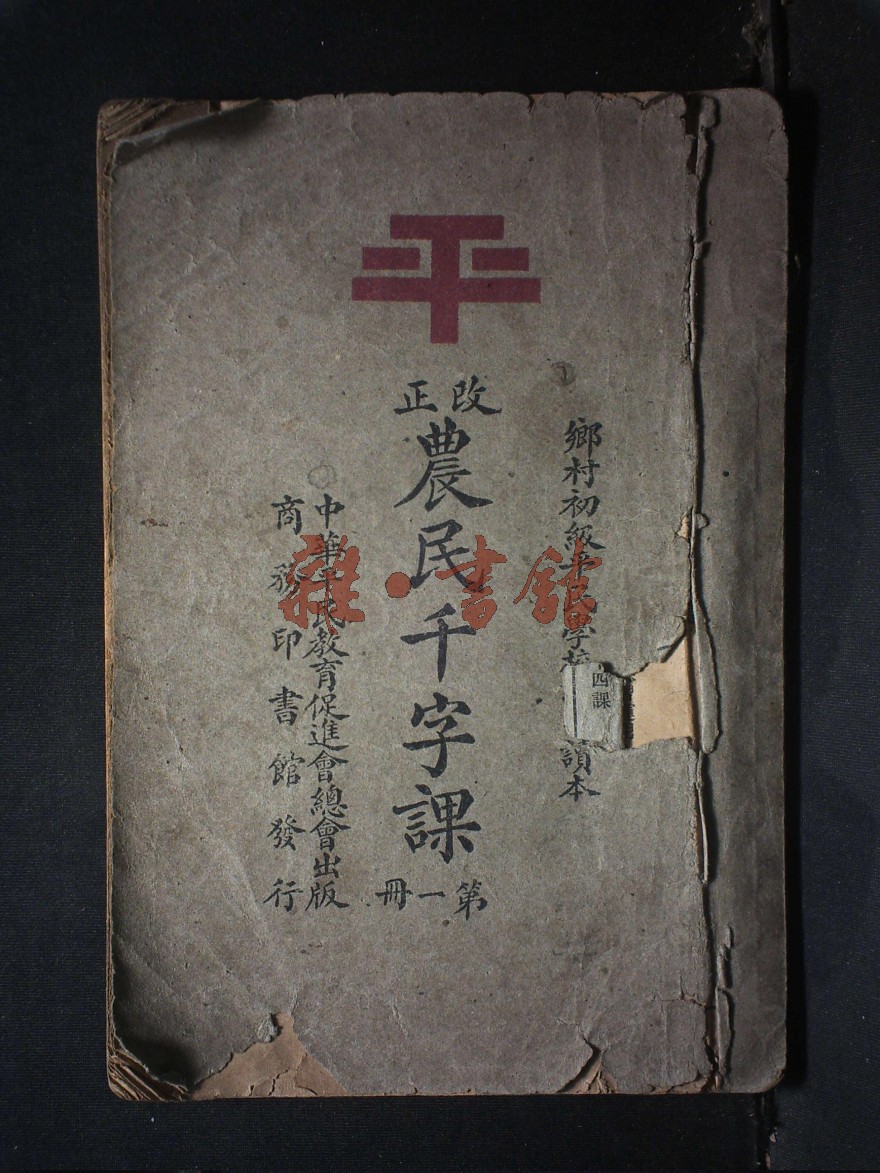 平
改正
農民千字課
第一冊
鄉村初級平民學校
讀本
四課
中華平民教育促進會總會出版
商務印書館發行
雜·書館